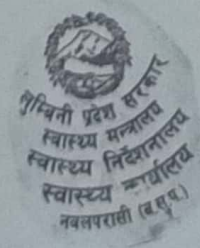 लुम्बिनी प्रदेश सरकार
स्वास्थ्य मन्त्रालय
स्वास्थ्य निर्देशनालय
स्वास्थ्य कार्यालय
नवलपरासी (ब.सु.प.)